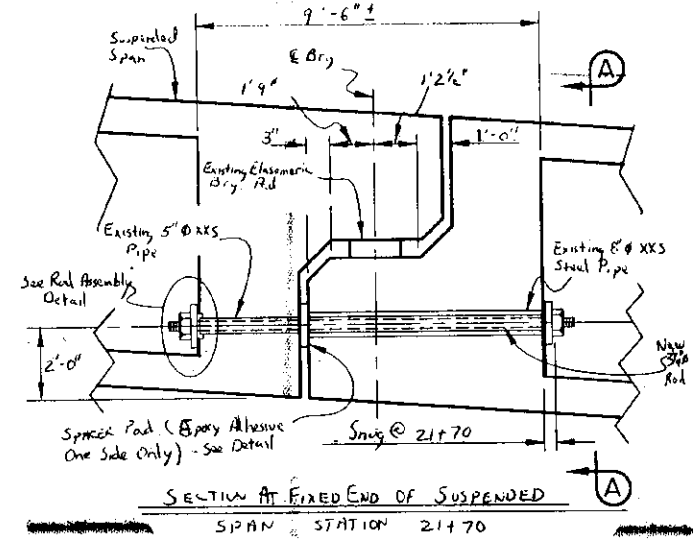 9'-6" ±
Suspended
Span
℄ Brg
A
1'9"
1'2½"
3"
1'-0"
Existing Elastomeric
Brg. Pad
Existing 5" Ø XXS
Pipe
Existing 8" Ø XXS
Steel Pipe
See Rod Assembly
Detail
New
Rod
2'-0"
Spacer Pad (Epoxy Adhesive
One Side Only) - See Detail
Snug @ 21+70
A
SECTION AT FIXED END OF SUSPENDED
SPAN STATION 21+70